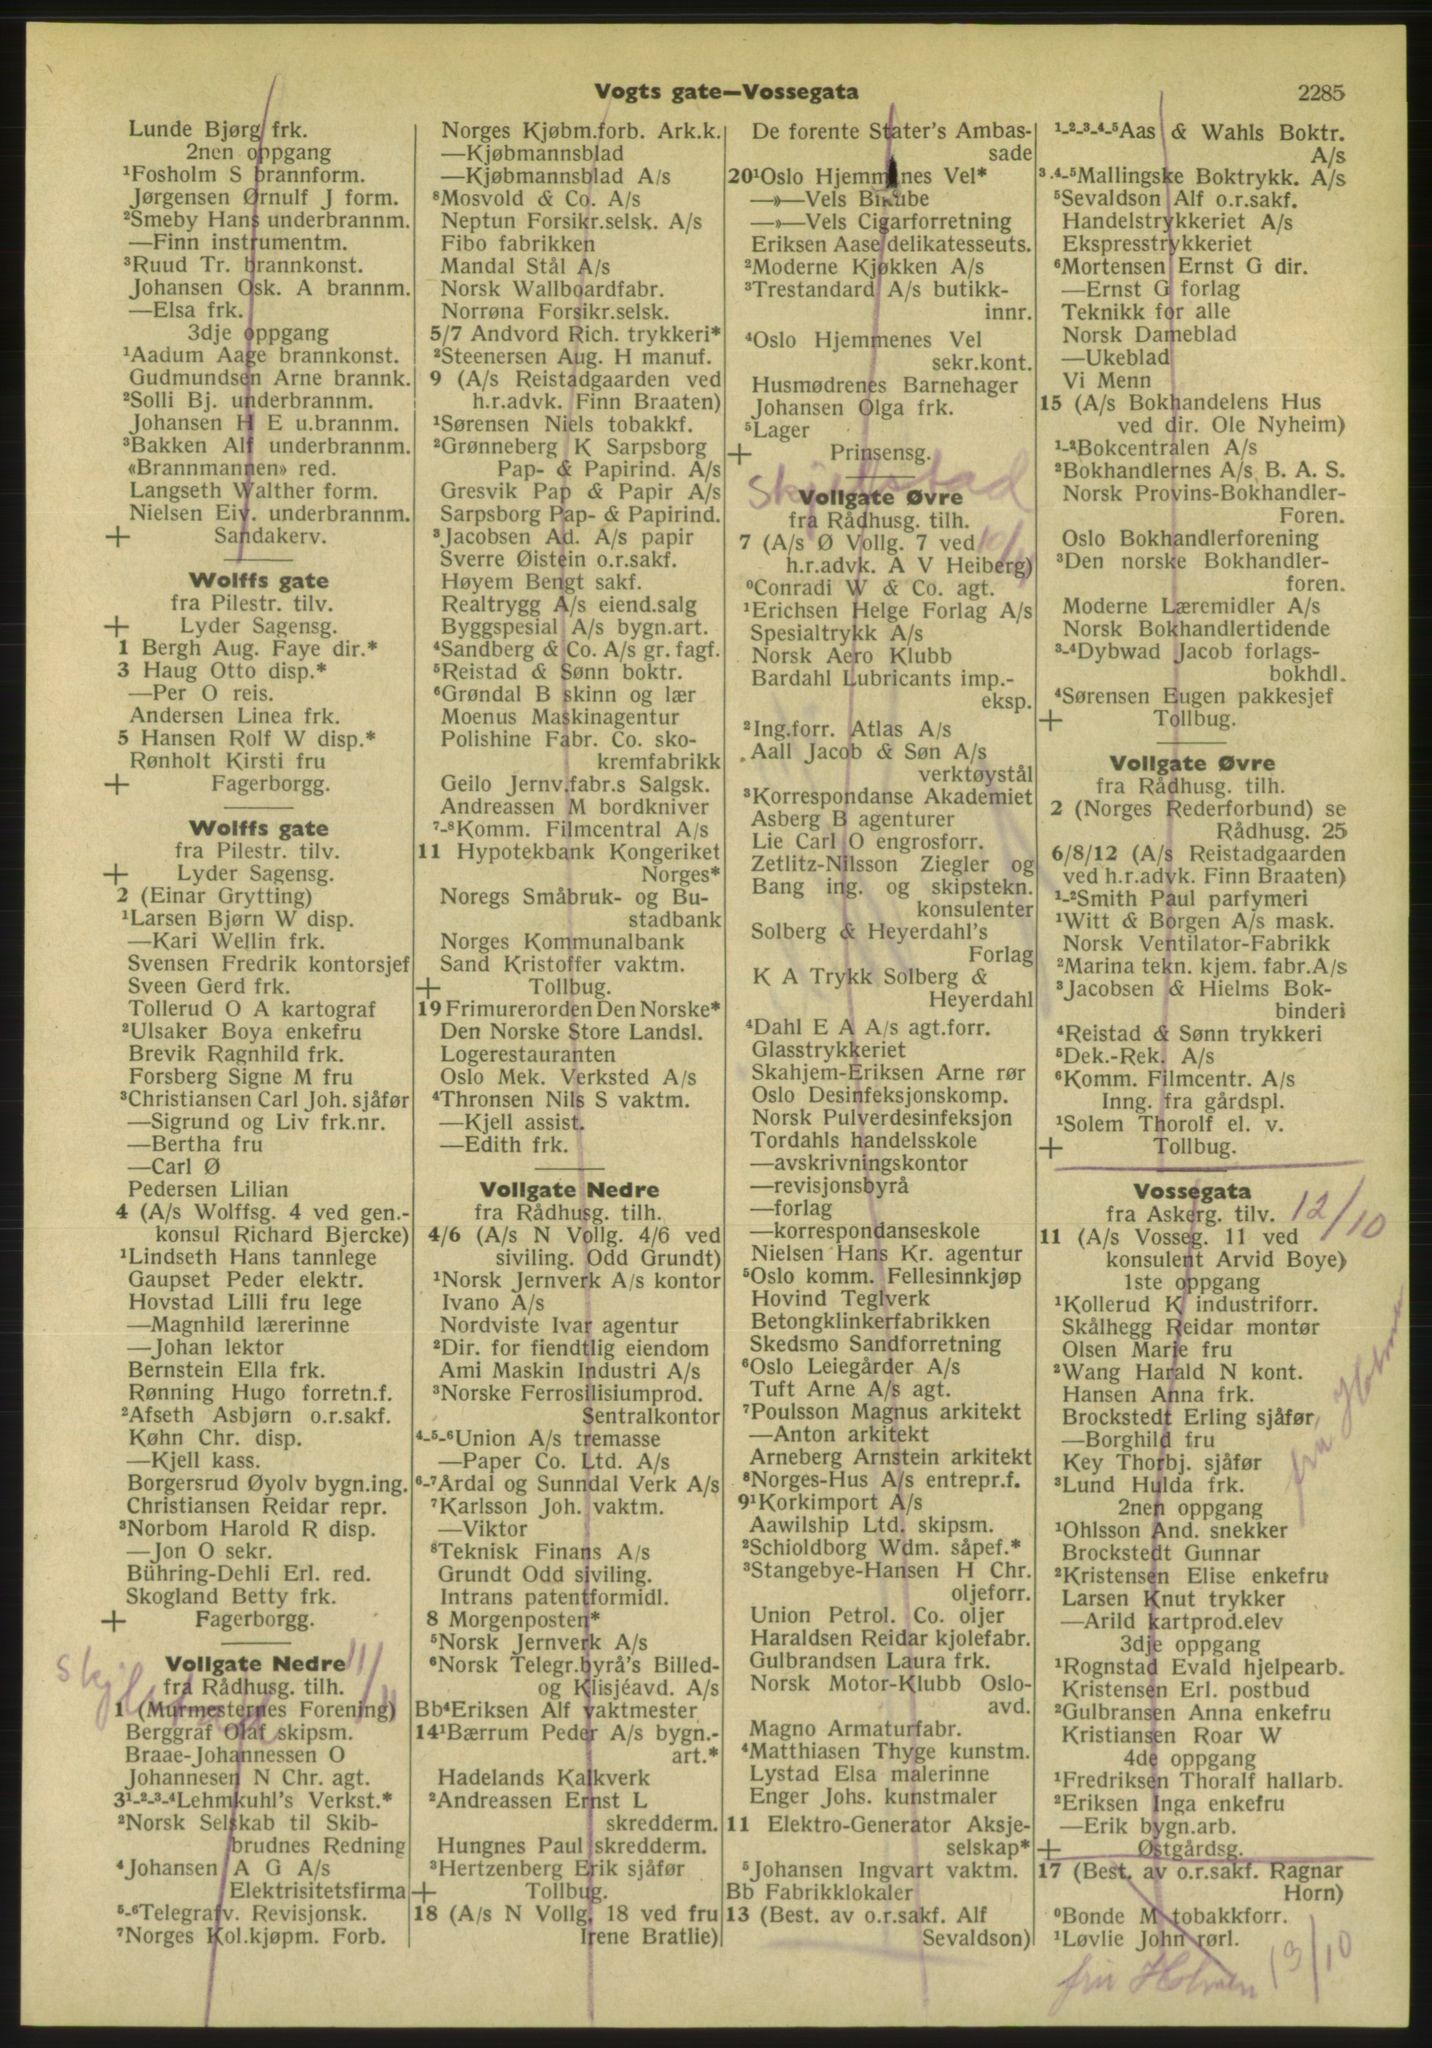 Vogts gate—Vossegata
2285
Lunde Bjørg frk.
2nen oppgang
¹Fosholm S brannform.
Jørgensen Ørnulf J form.
²Smeby Hans underbrannm.
—Finn instrumentm.
³Ruud Tr. brannkonst.
Johansen Osk. A brannm.
—Elsa frk.
3dje oppgang
¹Aadum Aage brannkonst.
Gudmundsen Arne brannk.
²Solli Bj. underbrannm.
Johansen H E u.brannm.
³Bakken Alf underbrannm.
«Brannmannen» red.
Langseth Walther form.
Nielsen Eiv. underbrannm.
+ Sandakerv.
Wolffs gate
fra Pilestr. tilv.
+ Lyder Sagensg.
1 Bergh Aug. Faye dir.*
3 Haug Otto disp.*
—Per O reis.
Andersen Linea frk.
5 Hansen Rolf W disp.*
Rønholt Kirsti fru
+ Fagerborgg.
Wolffs gate
fra Pilestr. tilv.
+ Lyder Sagensg.
2 (Einar Grytting)
¹Larsen Bjørn W disp.
—Kari Wellin frk.
Svensen Fredrik kontorsjef
Sveen Gerd frk.
Tollerud O A kartograf
²Ulsaker Boya enkefru
Brevik Ragnhild frk.
Forsberg Signe M fru
³Christiansen Carl Joh. sjåfør
—Sigrund og Liv frk.nr.
—Bertha fru
—Carl Ø
Pedersen Lilian
4 (A/s Wolffsg. 4 ved gen.-
konsul Richard Bjercke)
¹Lindseth Hans tannlege
Gaupset Peder elektr.
Hovstad Lilli fru lege
—Magnhild lærerinne
—Johan lektor
Bernstein Ella frk.
Rønning Hugo forretn.f.
²Afseth Asbjørn o.r.sakf.
Køhn Chr. disp.
—Kjell kass.
Borgersrud Øyolv bygn.ing.
Christiansen Reidar repr.
³Norbom Harold R disp.
—Jon O sekr.
Bühring-Dehli Erl. red.
Skogland Betty frk.
+ Fagerborgg.
Vollgate Nedre
fra Rådhusg. tilh.
1 (Murmesternes Forening)
Berggraf Olaf skipsm.
Braae-Johannessen O
Johannesen N Chr. agt.
3¹-²-³-⁴Lehmkuhl's Verkst.*
²Norsk Selskab til Skib-
brudnes Redning
⁴Johansen A G A/s
Elektrisitetsfirma
⁵-⁶Telegrafv. Revisjonsk.
⁷Norges Kol.kjøpm. Forb.
Norges Kjøbm.forb. Ark.k.
—Kjøbmannsblad
—Kjøbmannsblad A/s
⁸Mosvold & Co. A/s
Neptun Forsikr.selsk. A/s
Fibo fabrikken
Mandal Stål A/s
Norsk Wallboardfabr.
Norrøna Forsikr.selsk.
5/7 Andvord Rich. trykkeri*
²Steenersen Aug. H manuf.
9 (A/s Reistadgaarden ved
h.r.advk. Finn Braaten)
¹Sørensen Niels tobakkf.
²Grønneberg K Sarpsborg
Pap- & Papirind. A/s
Gresvik Pap & Papir A/s
Sarpsborg Pap- & Papirind.
³Jacobsen Ad. A/s papir
Sverre Øistein o.r.sakf.
Høyem Bengt sakf.
Realtrygg A/s eiend.salg
Byggspesial A/s bygn.art.
⁴Sandberg & Co. A/s gr. fagf.
⁵Reistad & Sønn boktr.
⁶Grøndal B skinn og lær
Moenus Maskinagentur
Polishine Fabr. Co. sko-
kremfabrikk
Geilo Jernv.fabr.s Salgsk.
Andreassen M bordkniver
⁷-⁸Komm. Filmcentral A/s
11 Hypotekbank Kongeriket
Norges*
Noregs Småbruk- og Bu-
stadbank
Norges Kommunalbank
Sand Kristoffer vaktm.
+ Tollbug.
19 Frimurerorden Den Norske*
Den Norske Store Landsl.
Logerestauranten
Oslo Mek. Verksted A/s
⁴Thronsen Nils S vaktm.
—Kjell assist.
—Edith frk.
Vollgate Nedre
fra Rådhusg. tilh.
4/6 (A/s N Vollg. 4/6 ved
siviling. Odd Grundt)
¹Norsk Jernverk A/s kontor
Ivano A/s
Nordviste Ivar agentur
²Dir. for fiendtlig eiendom
Ami Maskin Industri A/s
³Norske Ferrosilisiumprod.
Sentralkontor
⁴-⁵-⁶Union A/s tremasse
—Paper Co. Ltd. A/s
⁶-⁷Årdal og Sunndal Verk A/s
⁷Karlsson Joh. vaktm.
—Viktor
⁸Teknisk Finans A/s
Grundt Odd siviling.
Intrans patentformidl.
8 Morgenposten*
⁵Norsk Jernverk A/s
⁶Norsk Telegr.byrå's Billed-
og Klisjéavd. A/s
Bb⁴Eriksen Alf vaktmester
14¹Bærrum Peder A/s bygn.-
art.*
Hadelands Kalkverk
²Andreassen Ernst L
skredderm.
Hungnes Paul skredderm.
³Hertzenberg Erik sjåfør
+ Tollbug.
18 (A/s N Vollg. 18 ved fru
Irene Bratlie)
De forente Stater's Ambas-
sade
20¹Oslo Hjemmenes Vel*
—»—Vels Bikube
—»—Vels Cigarforretning
Eriksen Aase delikatesseuts.
²Moderne Kjøkken A/s
³Trestandard A/s butikk-
innr.
⁴Oslo Hjemmenes Vel
sekr.kont.
Husmødrenes Barnehager
Johansen Olga frk.
⁵Lager
+ Prinsensg.
Vollgate Øvre
fra Rådhusg. tilh.
7 (A/s Ø Vollg. 7 ved
h.r.advk. A V Heiberg)
⁰Conradi W & Co. agt.
¹Erichsen Helge Forlag A/s
Spesialtrykk A/s
Norsk Aero Klubb
Bardahl Lubricants imp.-
eksp.
²Ing.forr. Atlas A/s
Aall Jacob & Søn A/s
verktøystål
³Korrespondanse Akademiet
Asberg B agenturer
Lie Carl O engrosforr.
Zetlitz-Nilsson Ziegler og
Bang ing. og skipstekn.
konsulenter
Solberg & Heyerdahl's
Forlag
K A Trykk Solberg &
Heyerdahl
⁴Dahl E A A/s agt.forr.
Glasstrykkeriet
Skahjem-Eriksen Arne rør
Oslo Desinfeksjonskomp.
Norsk Pulverdesinfeksjon
Tordahls handelsskole
—avskrivningskontor
—revisjonsbyrå
—forlag
—korrespondanseskole
Nielsen Hans Kr. agentur
⁵Oslo komm. Fellesinnkjøp
Hovind Teglverk
Betongklinkerfabrikken
Skedsmo Sandforretning
⁶Oslo Leiegårder A/s
Tuft Arne A/s agt.
⁷Poulsson Magnus arkitekt
—Anton arkitekt
Arneberg Arnstein arkitekt
⁸Norges-Hus A/s entrepr.f.
9¹Korkimport A/s
Aawilship Ltd. skipsm.
²Schioldborg Wdm. såpef.*
³Stangebye-Hansen H Chr.
oljeforr.
Union Petrol. Co. oljer
Haraldsen Reidar kjolefabr.
Gulbrandsen Laura frk.
Norsk Motor-Klubb Oslo-
avd.
Magno Armaturfabr.
⁴Matthiasen Thyge kunstm.
Lystad Elsa malerinne
Enger Johs. kunstmaler
11 Elektro-Generator Aksje-
selskap*
⁵Johansen Ingvart vaktm.
Bb Fabrikklokaler
13 (Best. av o.r.sakf. Alf
Sevaldson)
¹-²-³-⁴-⁵Aas & Wahls Boktr.
A/s
³.⁴-⁵Mallingske Boktrykk. A/s
⁵Sevaldson Alf o.r.sakf.
Handelstrykkeriet A/s
Ekspresstrykkeriet
⁶Mortensen Ernst G dir.
—Ernst G forlag
Teknikk for alle
Norsk Dameblad
—Ukeblad
Vi Menn
15 (A/s Bokhandelens Hus
ved dir. Ole Nyheim)
¹-²Bokcentralen A/s
²Bokhandlernes A/s B. A. S.
Norsk Provins-Bokhandler-
Foren.
Oslo Bokhandlerforening
³Den norske Bokhandler-
foren.
Moderne Læremidler A/s
Norsk Bokhandlertidende
³-⁴Dybwad Jacob forlags-
bokhdl.
⁴Sørensen Eugen pakkesjef
+ Tollbug.
Vollgate Øvre
fra Rådhusg. tilh.
2 (Norges Rederforbund) se
Rådhusg. 25
6/8/12 (A/s Reistadgaarden
ved h.r.advk. Finn Braaten)
¹-²Smith Paul parfymeri
¹Witt & Borgen A/s mask.
Norsk Ventilator-Fabrikk
²Marina tekn. kjem. fabr.A/s
³Jacobsen & Hielms Bok-
binderi
⁴Reistad & Sønn trykkeri
⁵Dek.-Rek. A/s
⁶Komm. Filmcentr. A/s
Inng. fra gårdspl.
¹Solem Thorolf el. v.
+ Tollbug.
Vossegata
fra Askerg. tilv. 12/10
11 (A/s Vosseg. 11 ved
konsulent Arvid Boye)
1ste oppgang
¹Kollerud K industriforr.
Skålhegg Reidar montør
Olsen Marie fru
²Wang Harald N kont.
Hansen Anna frk.
Brockstedt Erling sjåfør
—Borghild fru
Key Thorbj. sjåfør
³Lund Hulda frk.
2nen oppgang
¹Ohlsson And. snekker
Brockstedt Gunnar
²Kristensen Elise enkefru
Larsen Knut trykker
—Arild kartprod.elev
3dje oppgang
¹Rognstad Evald hjelpearb.
Kristensen Erl. postbud
²Gulbransen Anna enkefru
Kristiansen Roar W
4de oppgang
¹Fredriksen Thoralf hallarb.
²Eriksen Inga enkefru
—Erik bygn.arb.
+ Østgårdsg.
17 (Best. av o.r.sakf. Ragnar
Horn)
⁰Bonde M tobakkforr.
¹Løvlie John rørl.
fru Holmen 13/10